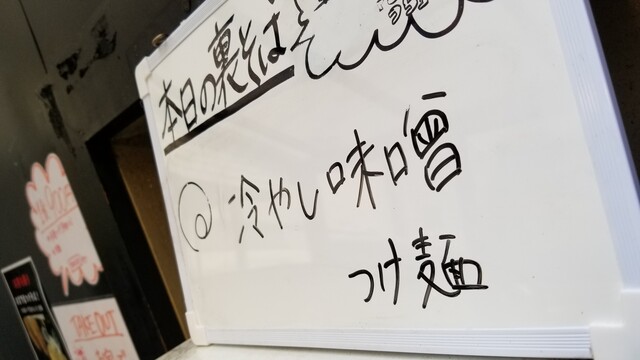 本日の裏そば
冷やし味噌
つけ麺
TAKE OUT